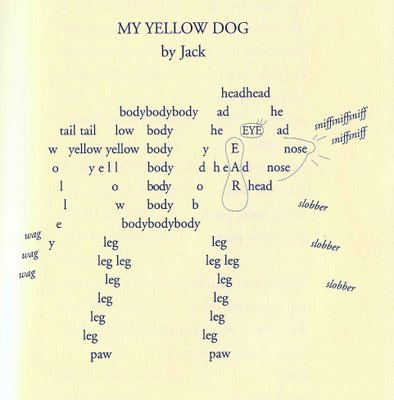 MY YELLOW DOG
by Jack
headhead
bodybodybody ad he sniffsniffsniff
tail tail low body he EYE ad sniffsniff
w yellow yellow body y E nose
o yell body d heAd nose
l o body o R head
l w body b slobber
e bodybodybody
wag
y leg leg slobber
wag leg leg leg leg
wag leg leg slobber
leg leg
leg leg
leg leg
paw paw